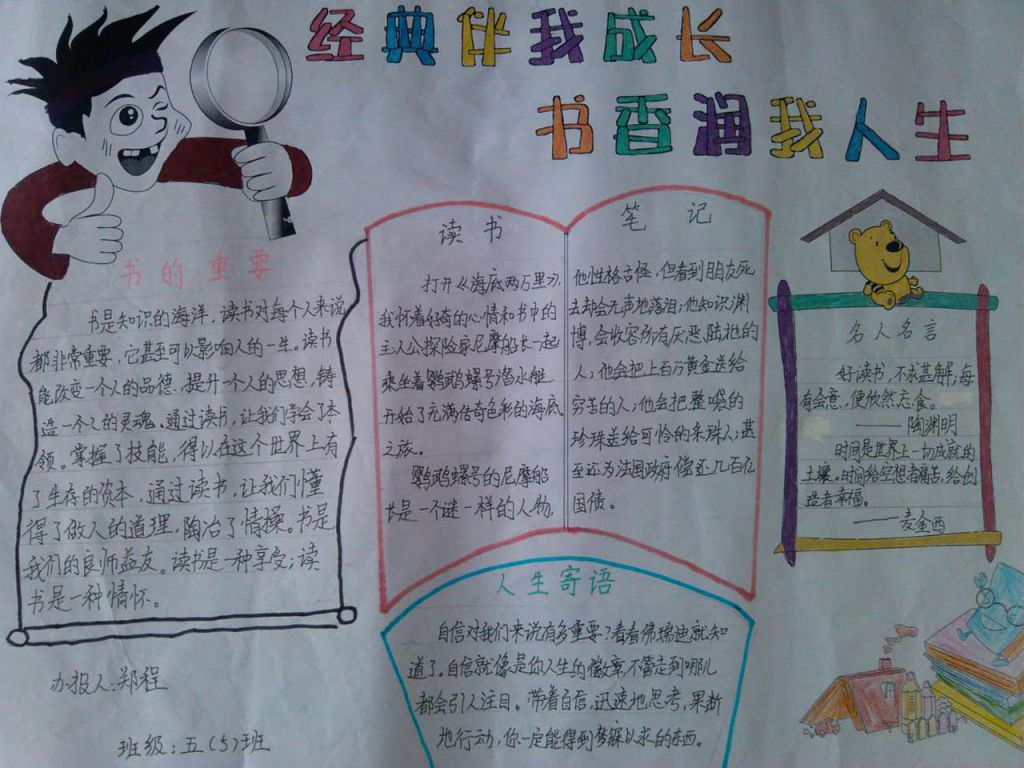 经典伴我成长
书香润我人生
书的重要
书是知识的海洋，读书对每个人来说
都非常重要，它甚至可以影响人的一生。读书
能改变一个人的品德，提升一个人的思想，铸
造一个人的灵魂。通过读书，让我们学会了本
领。掌握了技能，得以在这个世界上有
了生存的资本，通过读书，让我们懂
得了做人的道理，陶冶了情操。书是
我们的良师益友。读书是一种享受；读
书是一种情怀。
办报人：郑程
班级：五（5）班
读书
打开《海底两万里》，
我怀着好奇的心情和书中的
主人公探险家尼摩船长一起
乘坐着鹦鹉螺号潜水艇
开始了充满传奇色彩的海底
之旅。
鹦鹉螺号的尼摩船
长是一个谜一样的人物，
笔记
他性格古怪，但看到朋友死
去却会无声地落泪；他知识渊
博，会收容所有厌恶陆地的
人；他会把上百万黄金送给
穷苦的人；他会把整袋的
珍珠送给可怜的采珠人；甚
至还为法国政府偿还几百亿
国债。
人生寄语
自信对我们来说有多重要？看看佛瑞迪就知
道了。自信就像是你人生的徽章不管走到哪儿
都会引人注目。带着自信，迅速地思考，果断
地行动，你一定能得到梦寐以求的东西。
名人名言
好读书，不求甚解；每
有会意，便欣然忘食。
——陶渊明
时间是世界上一切成就的
土壤。时间给空想者痛苦，给创
造者幸福。
——麦金西